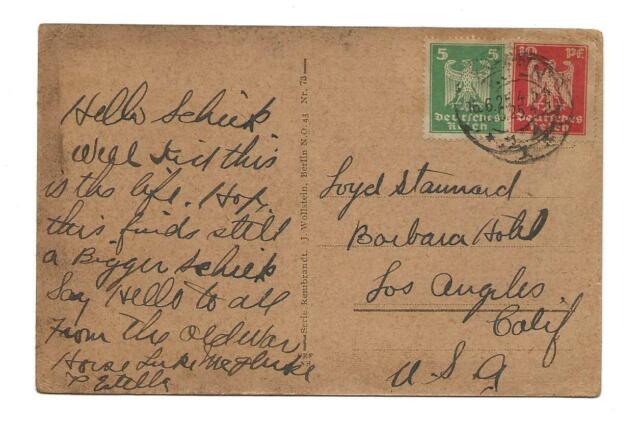 Hello Schiek
Well Kid this
is the life. Hope
this finds still
a Bigger Schiek
Say Hello to all
From the old War
Horse Luke McGluke
& Estella
Serie Rembrandt. J. Wollstein, Berlin N.O. 43 Nr. 73
5 5
Deutsches
Reich
10 PF
Deutsches
Reich
Loyd Stannard
Barbara Hotel
Los Angeles
Calif
U. S. A